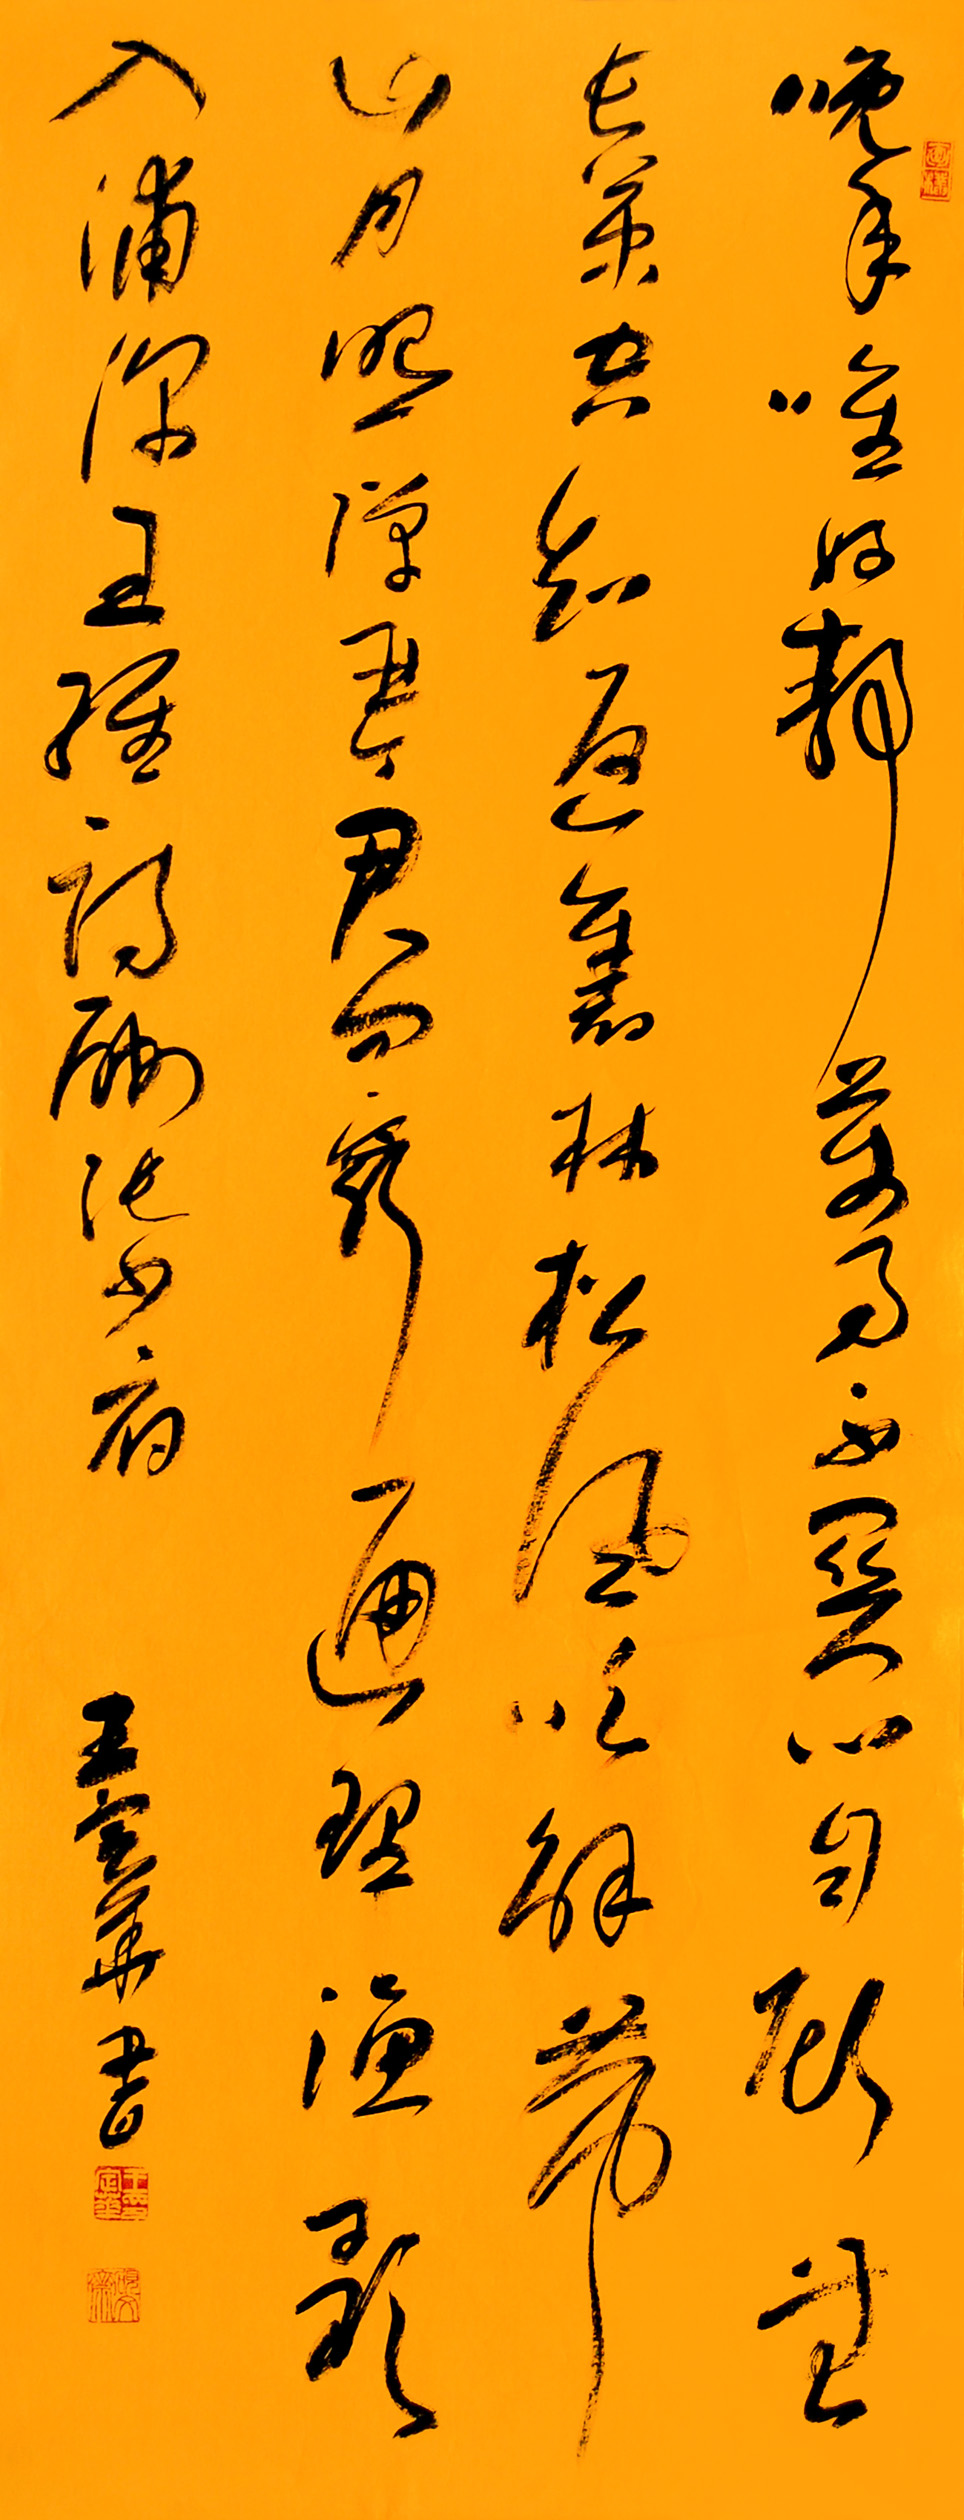 晚年唯好靜萬事不關心自顧無
長策空知返舊林松風吹解帶
山月照彈琴君問窮通理漁歌
入浦深王維詩酬張少府 王 書